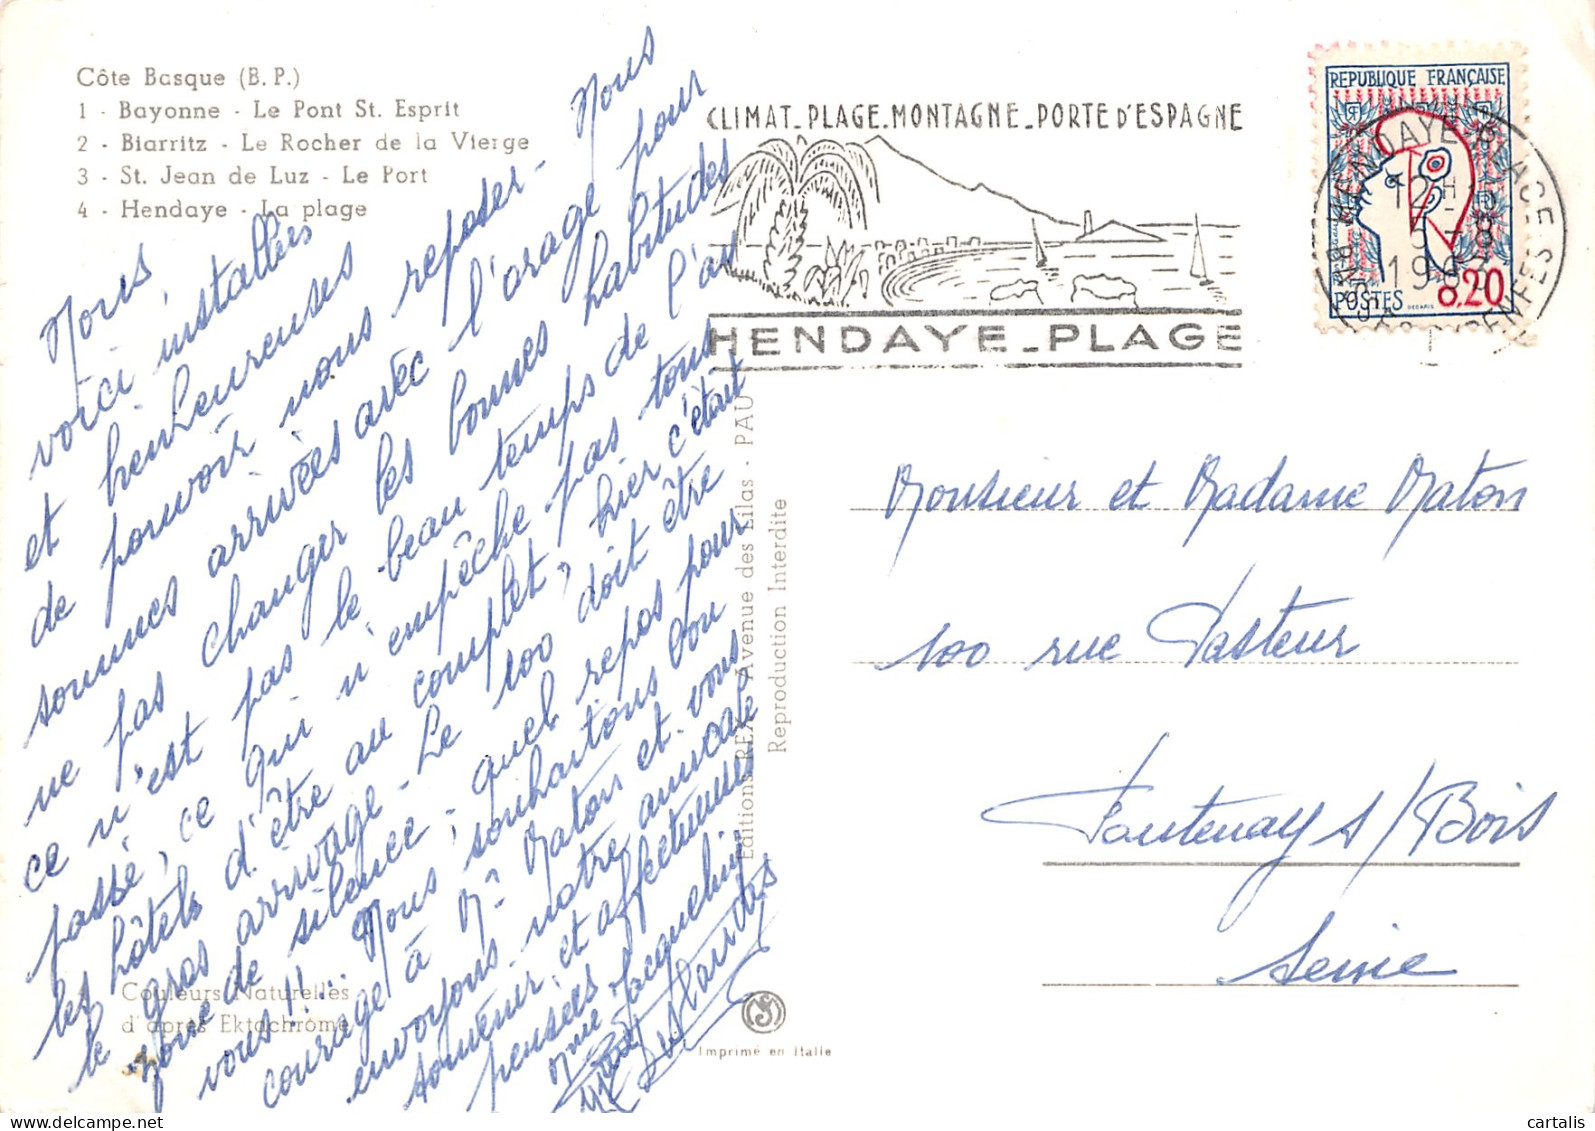 Côte Basque (B. P.)
1 - Bayonne - Le Pont St. Esprit
2 - Biarritz - Le Rocher de la Vierge
3 - St. Jean de Luz - Le Port
4 - Hendaye - La plage
Nous
voici installées
et bienheureuses
de pouvoir nous reposer - Nous
sommes arrivées avec l'orage pour
ne pas changer les bonnes habitudes
ce n'est pas le beau temps de l'an
passé, ce qui n'empêche pas tous
les hôtels d'être au complet, hier c'était
le gros arrivage - Le 100 doit être
zone de silence, quel repos pour
vous!! Nous souhaitons bon
courage à Mr Maton et vous
envoyons notre amicale
souvenir et affectueuses
pensées
Mme Jacquelin
Couleurs Naturelles
d'après Ektachrome
Editions REX Avenue des Lilas - PAU
Reproduction Interdite
Imprimé en Italie
CLIMAT_PLAGE_MONTAGNE_PORTE D'ESPAGNE
HENDAYE_PLAGE
REPUBLIQUE FRANÇAISE
POSTES 0.20
DECARIS
HENDAYE PLAGE
12H15
5-8
1963
Bses PYRENEES
Monsieur et Madame Maton
100 rue Pasteur
Fontenay s/Bois
Seine
cartalis
delcampe.net